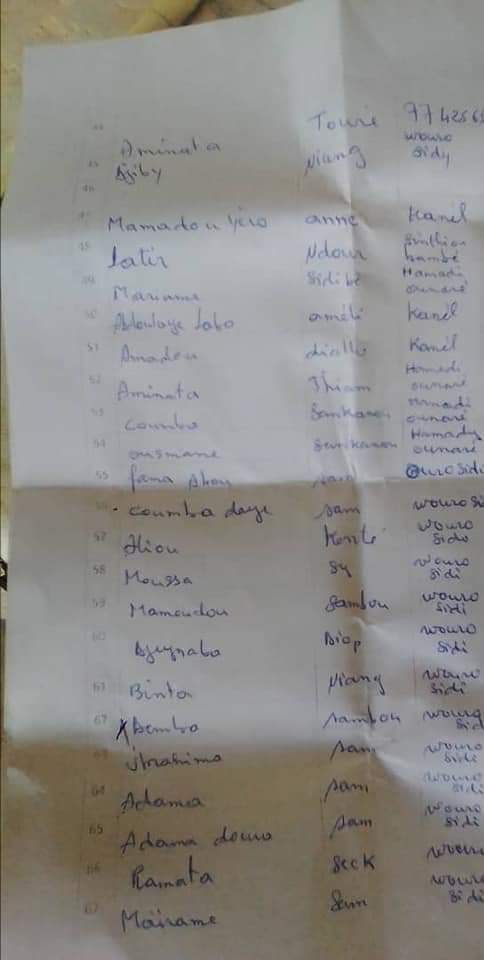 44 Touré 7742565
Aminata wouro
45 Djiby Niang sidy
46
47 Mamadou Yéro anne Kanél
48 Latir Ndour Sinthiou bambé
49 Mariame Sidibé Hamadi ounaré
50 Abdoulaye Labo Kanél
51 Amadou diallo Kanél
52 Aminata Thiam Hamedi ounaré
53 Coumba Hamadi ounaré
54 ousmane Hamady ounaré
55 fama ouro sidi
56 Coumba daye sam wouro si
57 Aliou Konté wouro sido
58 Moussa Sy wouro sidi
59 Mamoudou Sambou wouro sidi
60 Djeynaba Diop wouro sidi
61 Binta Niang wouro sidi
62 X Demba sambou wouro sidi
63 ibrahima sam wouro sidi
64 Adama sam wouro sidi
65 Adama demo sam wouro sidi
66 Ramata Seck wouro
67 Maïrame Sam wouro sidi